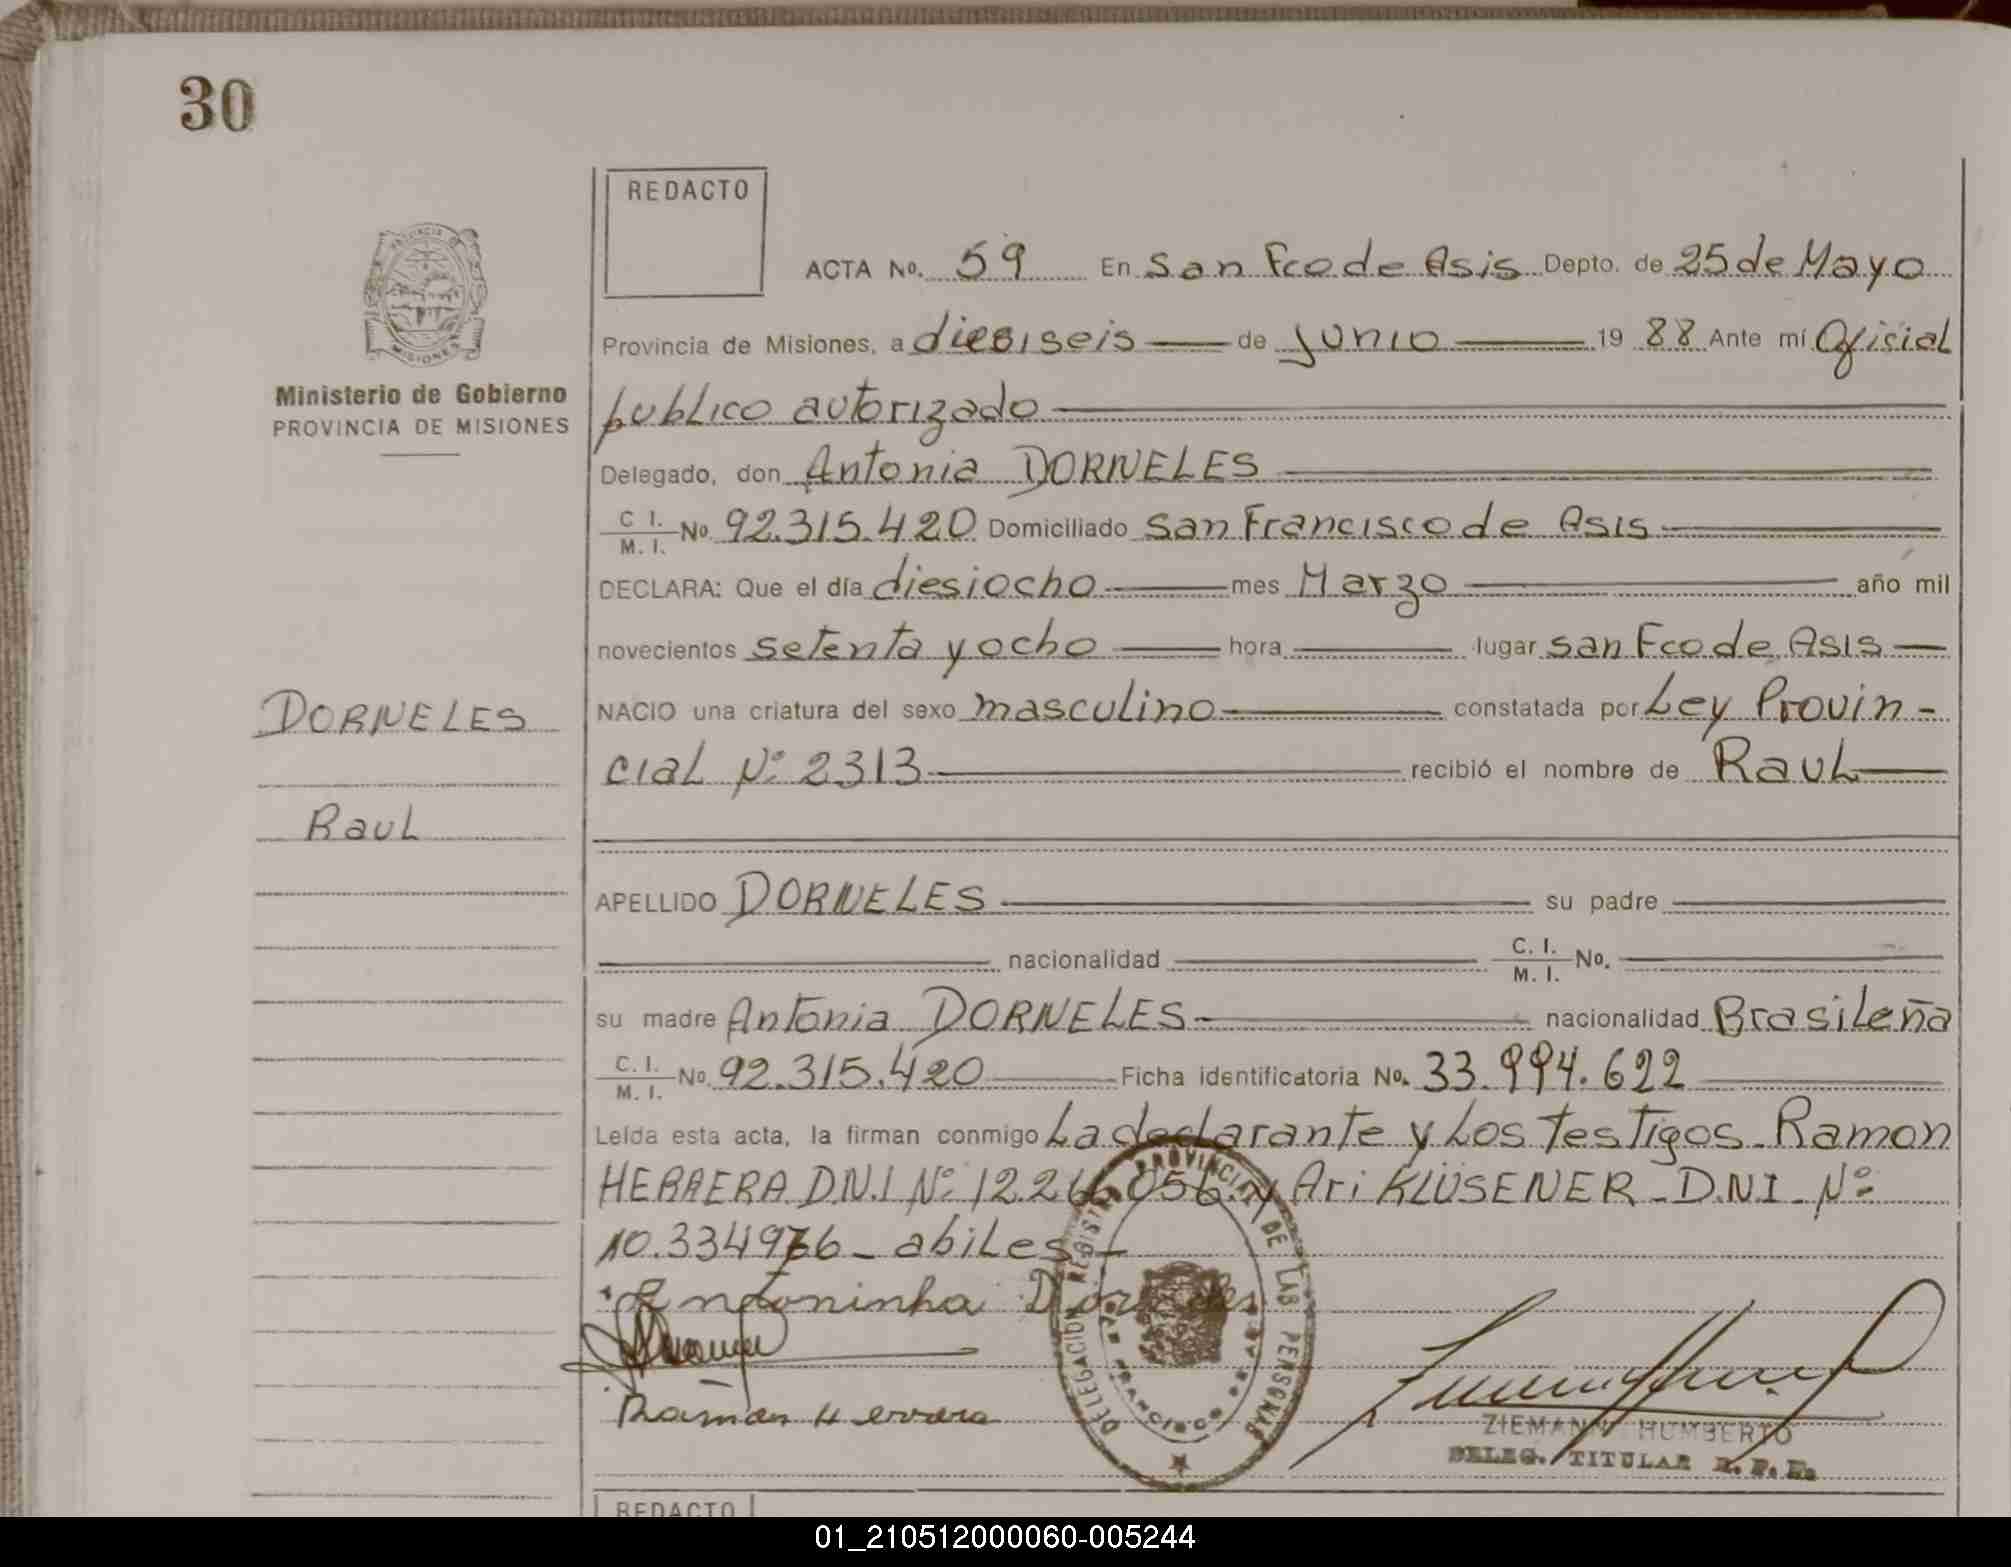 30
REDACTO
PROVINCIA DE
MISIONES
Ministerio de Gobierno
PROVINCIA DE MISIONES
ACTA No. 59 En San Fco de Asis Depto. de 25 de Mayo
Provincia de Misiones, a diesiseis — de Junio — 19 88 Ante mí Oficial
publico autorizado —
Delegado, don Antonia DORNELES —
C. I. / M. I. No. 92.315.420 Domiciliado San Francisco de Asis —
DECLARA: Que el día diesiocho — mes Marzo — año mil
novecientos setenta y ocho — hora — lugar San Fco de Asis —
NACIO una criatura del sexo masculino — constatada por Ley Provin-
cial Nº 2313 — recibió el nombre de Raul —
DORNELES
Raul
APELLIDO DORNELES — su padre —
— nacionalidad — C. I. / M. I. No. —
su madre Antonia DORNELES — nacionalidad Brasileña
C. I. / M. I. No. 92.315.420 — Ficha identificatoria No. 33.994.622 —
Leída esta acta, la firman conmigo La declarante y Los testigos Ramon
HERRERA D.N.I Nº 12.266.056 y Ari KLÜSENER - D.N.I - Nº
10.334976 - abiles -
Antoninha Dorneles
Ramon Herrera
DELEGACION REGISTRO PROVINCIAL DE LAS PERSONAS
FRANCISCO DE ASIS
ZIEMANN HUMBERTO
DELEG. TITULAR R. P. P.
REDACTO
01_210512000060-005244